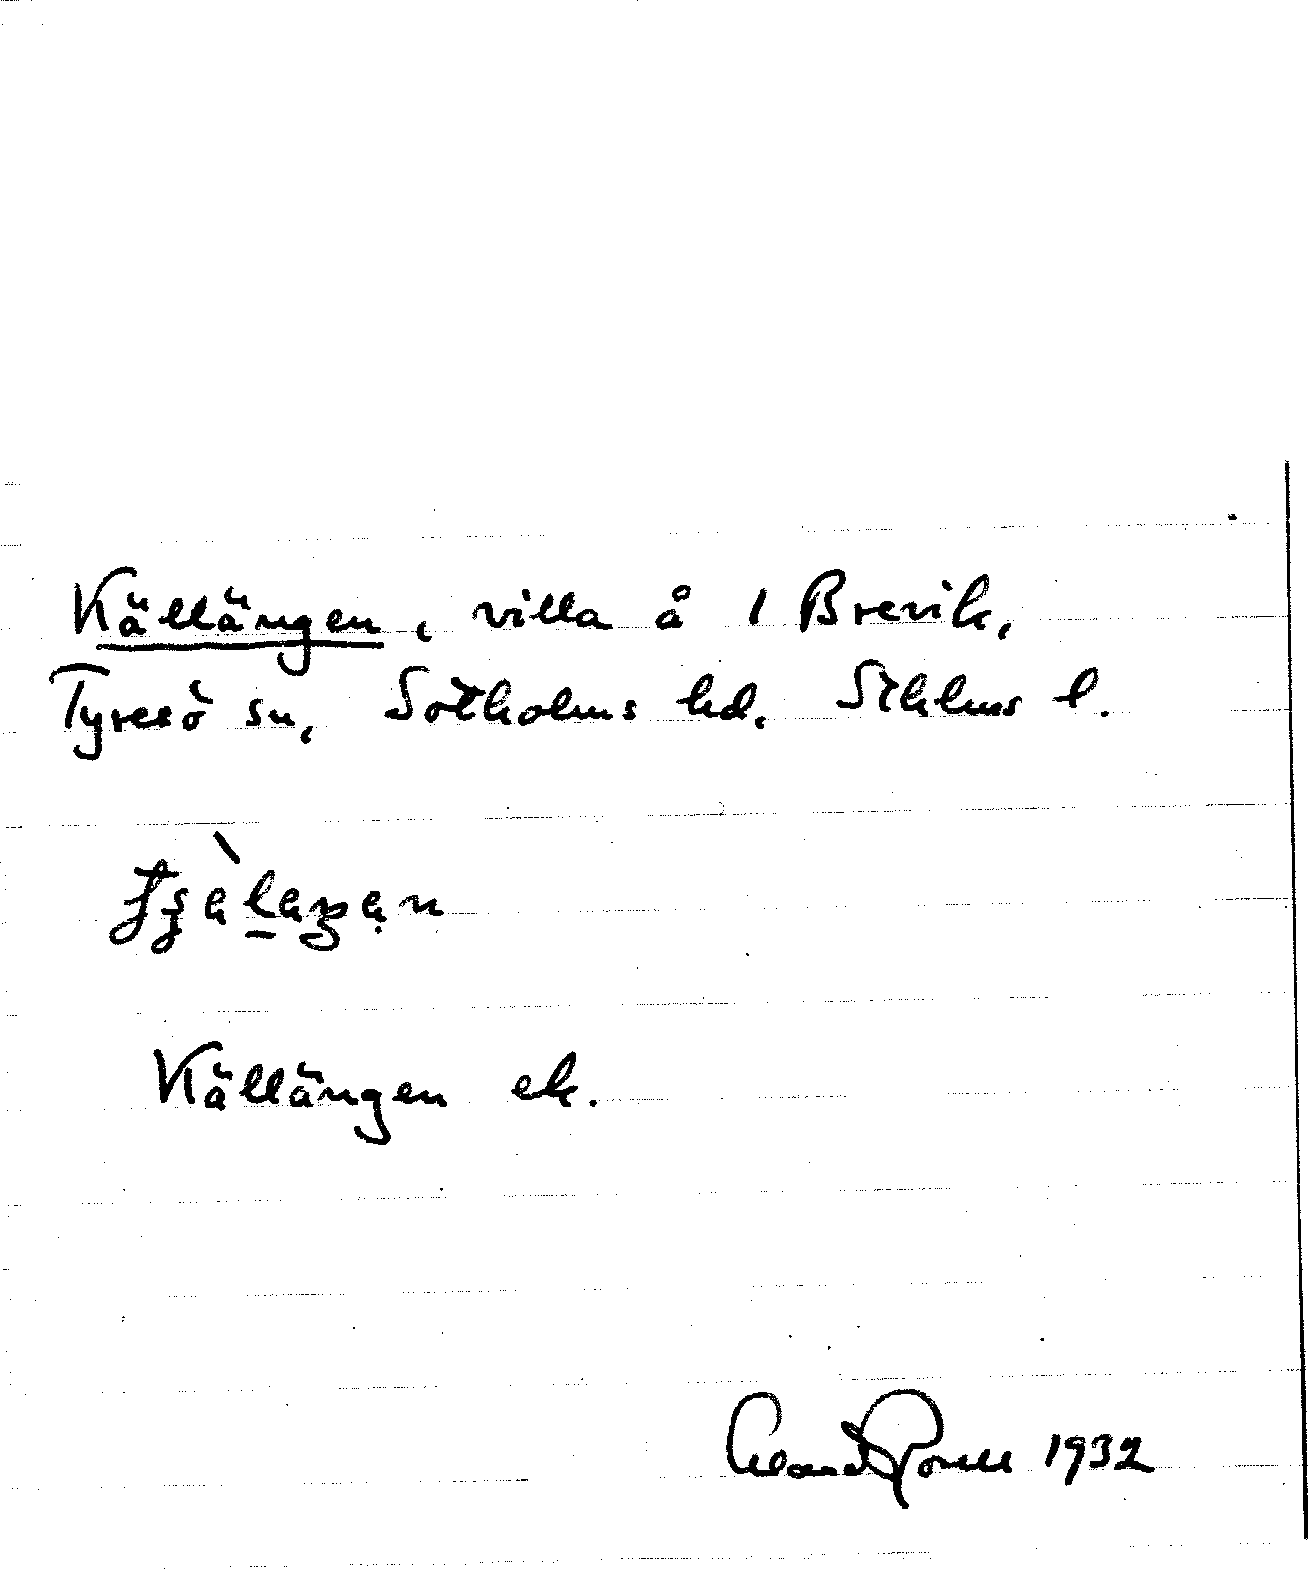 Källängen, villa å 1 Brevik,
Tyresö sn, Sotholms hd. Sthlms l.
Källängen ek.
1932